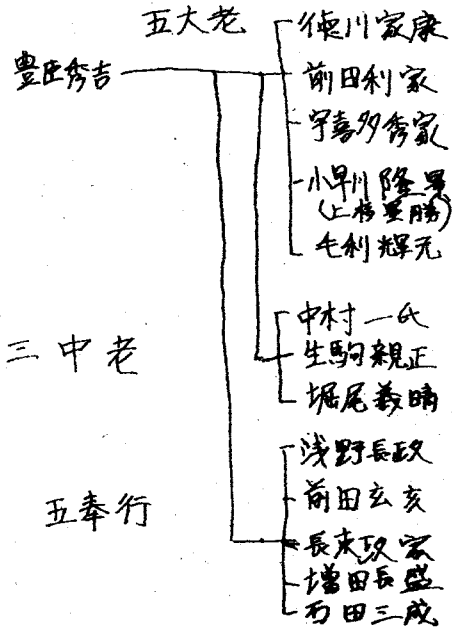 五大老
豊臣秀吉
徳川家康
前田利家
宇喜多秀家
小早川隆景
(上杉景勝)
毛利輝元
三中老
中村一氏
生駒親正
堀尾義晴
五奉行
浅野長政
前田玄亥
長束政家
増田長盛
石田三成